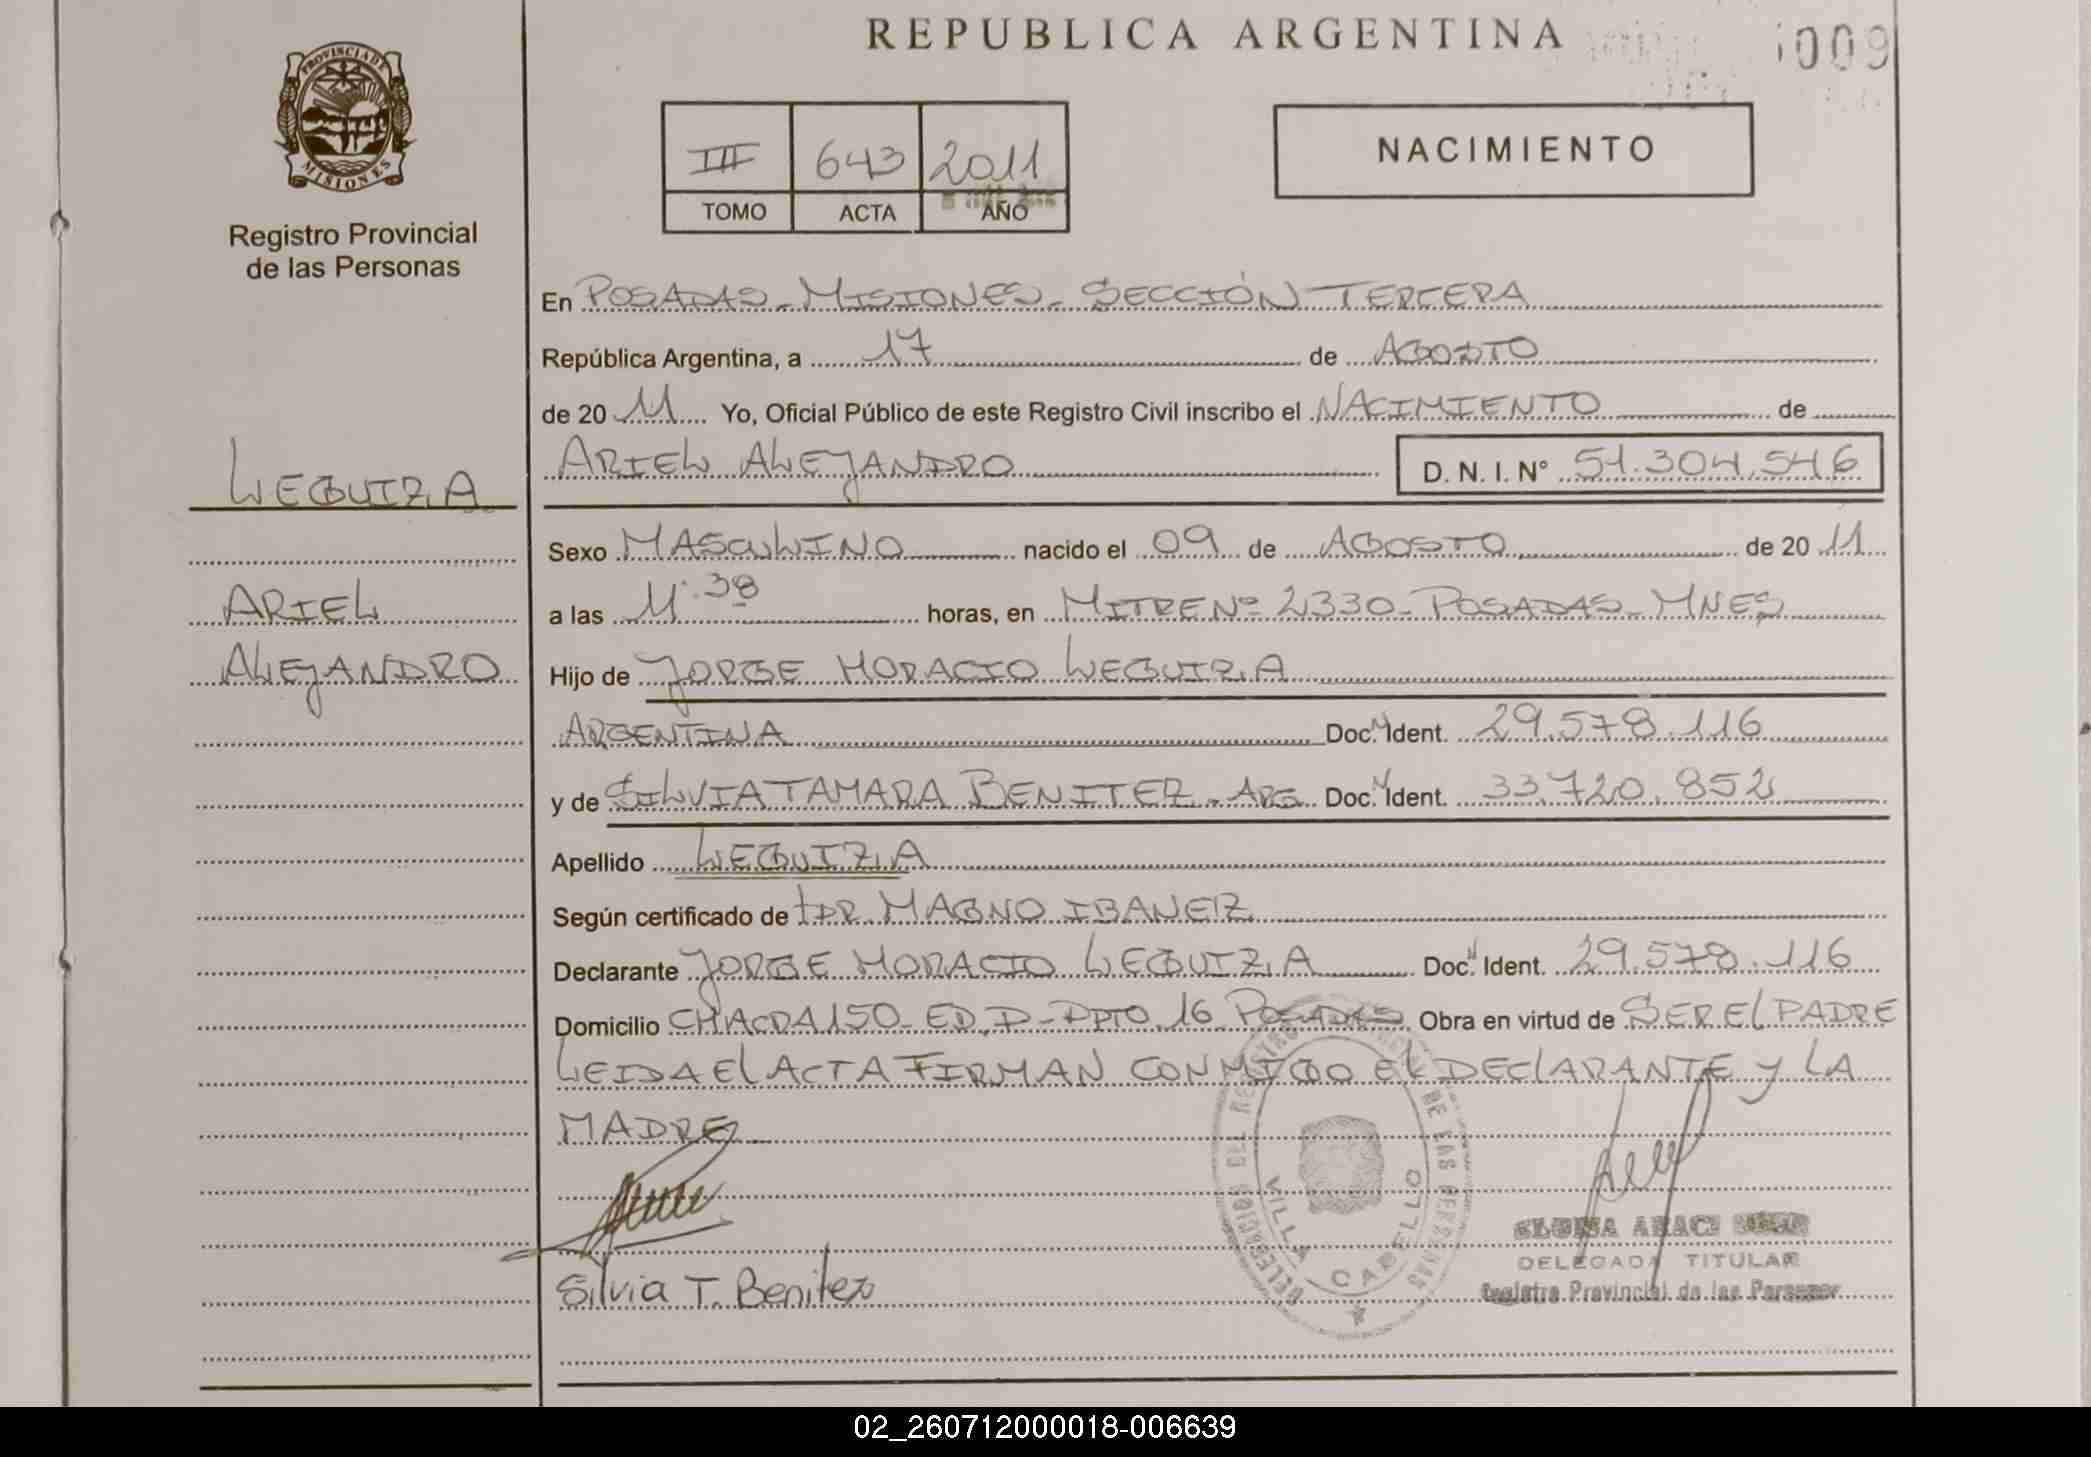 REPUBLICA ARGENTINA
009
PROVINCIA DE
MISIONES
Registro Provincial
de las Personas
III 643 2011
TOMO ACTA AÑO
NACIMIENTO
En POSADAS - MISIONES - SECCIÓN TERCERA
República Argentina, a 17 de AGOSTO
de 20 11 Yo, Oficial Público de este Registro Civil inscribo el NACIMIENTO de
ARIEL ALEJANDRO D. N. I. N° 51.304.546
LEGUIZA
Sexo MASCULINO nacido el 09 de AGOSTO de 20 11
ARIEL
a las 11:38 horas, en MITRE Nº 2330 - POSADAS - MNES
ALEJANDRO
Hijo de JORGE HORACIO LEGUIZA
ARGENTINA Doc. Ident. 29.578.116
y de SILVIA TAMARA BENITEZ - ARG Doc. Ident. 33.720.852
Apellido LEGUIZA
Según certificado de DR. MAGNO IBAÑEZ
Declarante JORGE HORACIO LEGUIZA Doc. Ident. 29.578.116
Domicilio CHACRA 150 - ED. D - DPTO. 16 POSADAS Obra en virtud de SER EL PADRE
LEIDA EL ACTA FIRMAN CONMIGO EL DECLARANTE Y LA
MADRE
Silvia T. Benitez
DELEGACION DEL REGISTRO PROVINCIAL DE LAS PERSONAS
VILLA CABELLO
DELEGADA TITULAR
Registro Provincial de las Personas
02_260712000018-006639